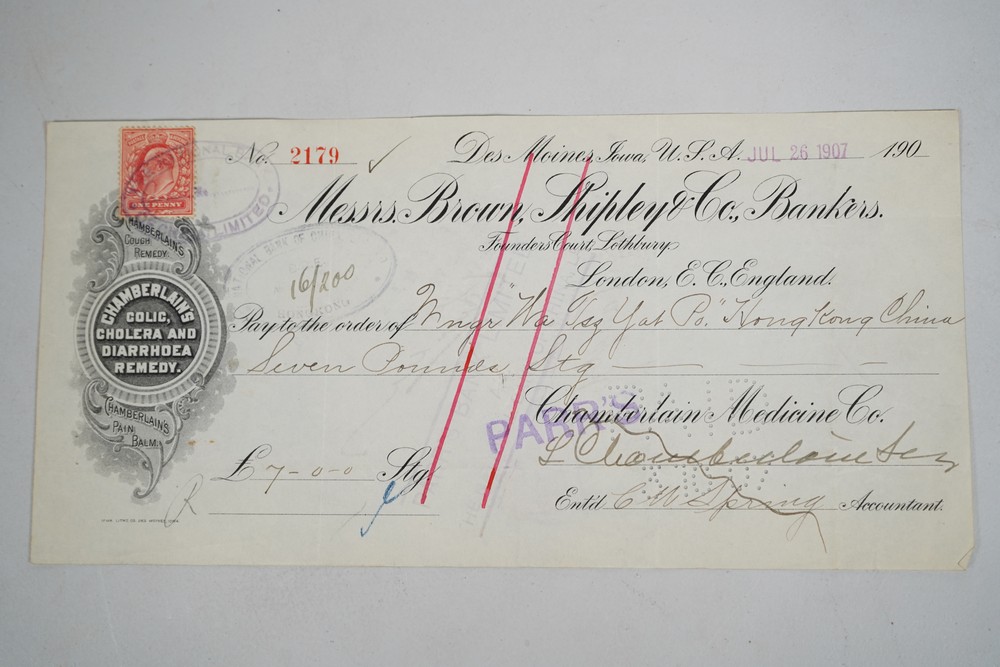 No. 2179
Des Moines, Iowa, U.S.A. JUL 26 1907 190
Messrs. Brown, Shipley & Co., Bankers.
Founders Court, Lothbury,
London, E.C., England.
ONE PENNY
LIMITED
16/200
Pay to the order of Mngr "Wa Tsz Yat Po." Hong Kong China
Seven Pounds Stg
Chamberlain Medicine Co.
PARR'S
L Chamberlain Sec
£7-0-0 Stg.
Ent'd C W Spring Accountant.
CHAMBERLAIN'S
COUGH
REMEDY.
CHAMBERLAIN'S
COLIC,
CHOLERA AND
DIARRHOEA
REMEDY.
CHAMBERLAIN'S
PAIN
BALM.